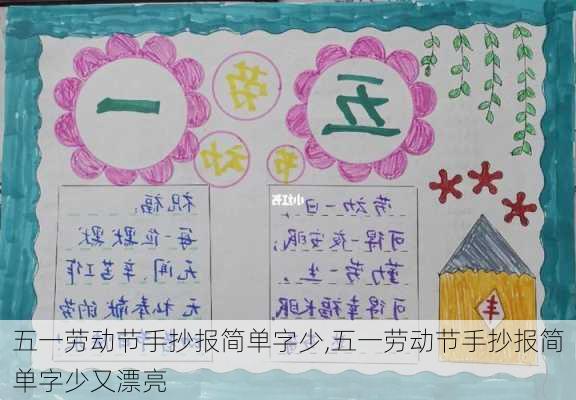 五一
劳动节
劳动一日,
可得一夜安眠;
勤劳一生,
可得幸福长眠
祝福:
每一位默默
无闻、辛苦工作
无私奉献的劳
丰
小红书
五一劳动节手抄报简单字少,五一劳动节手抄报简
单字少又漂亮